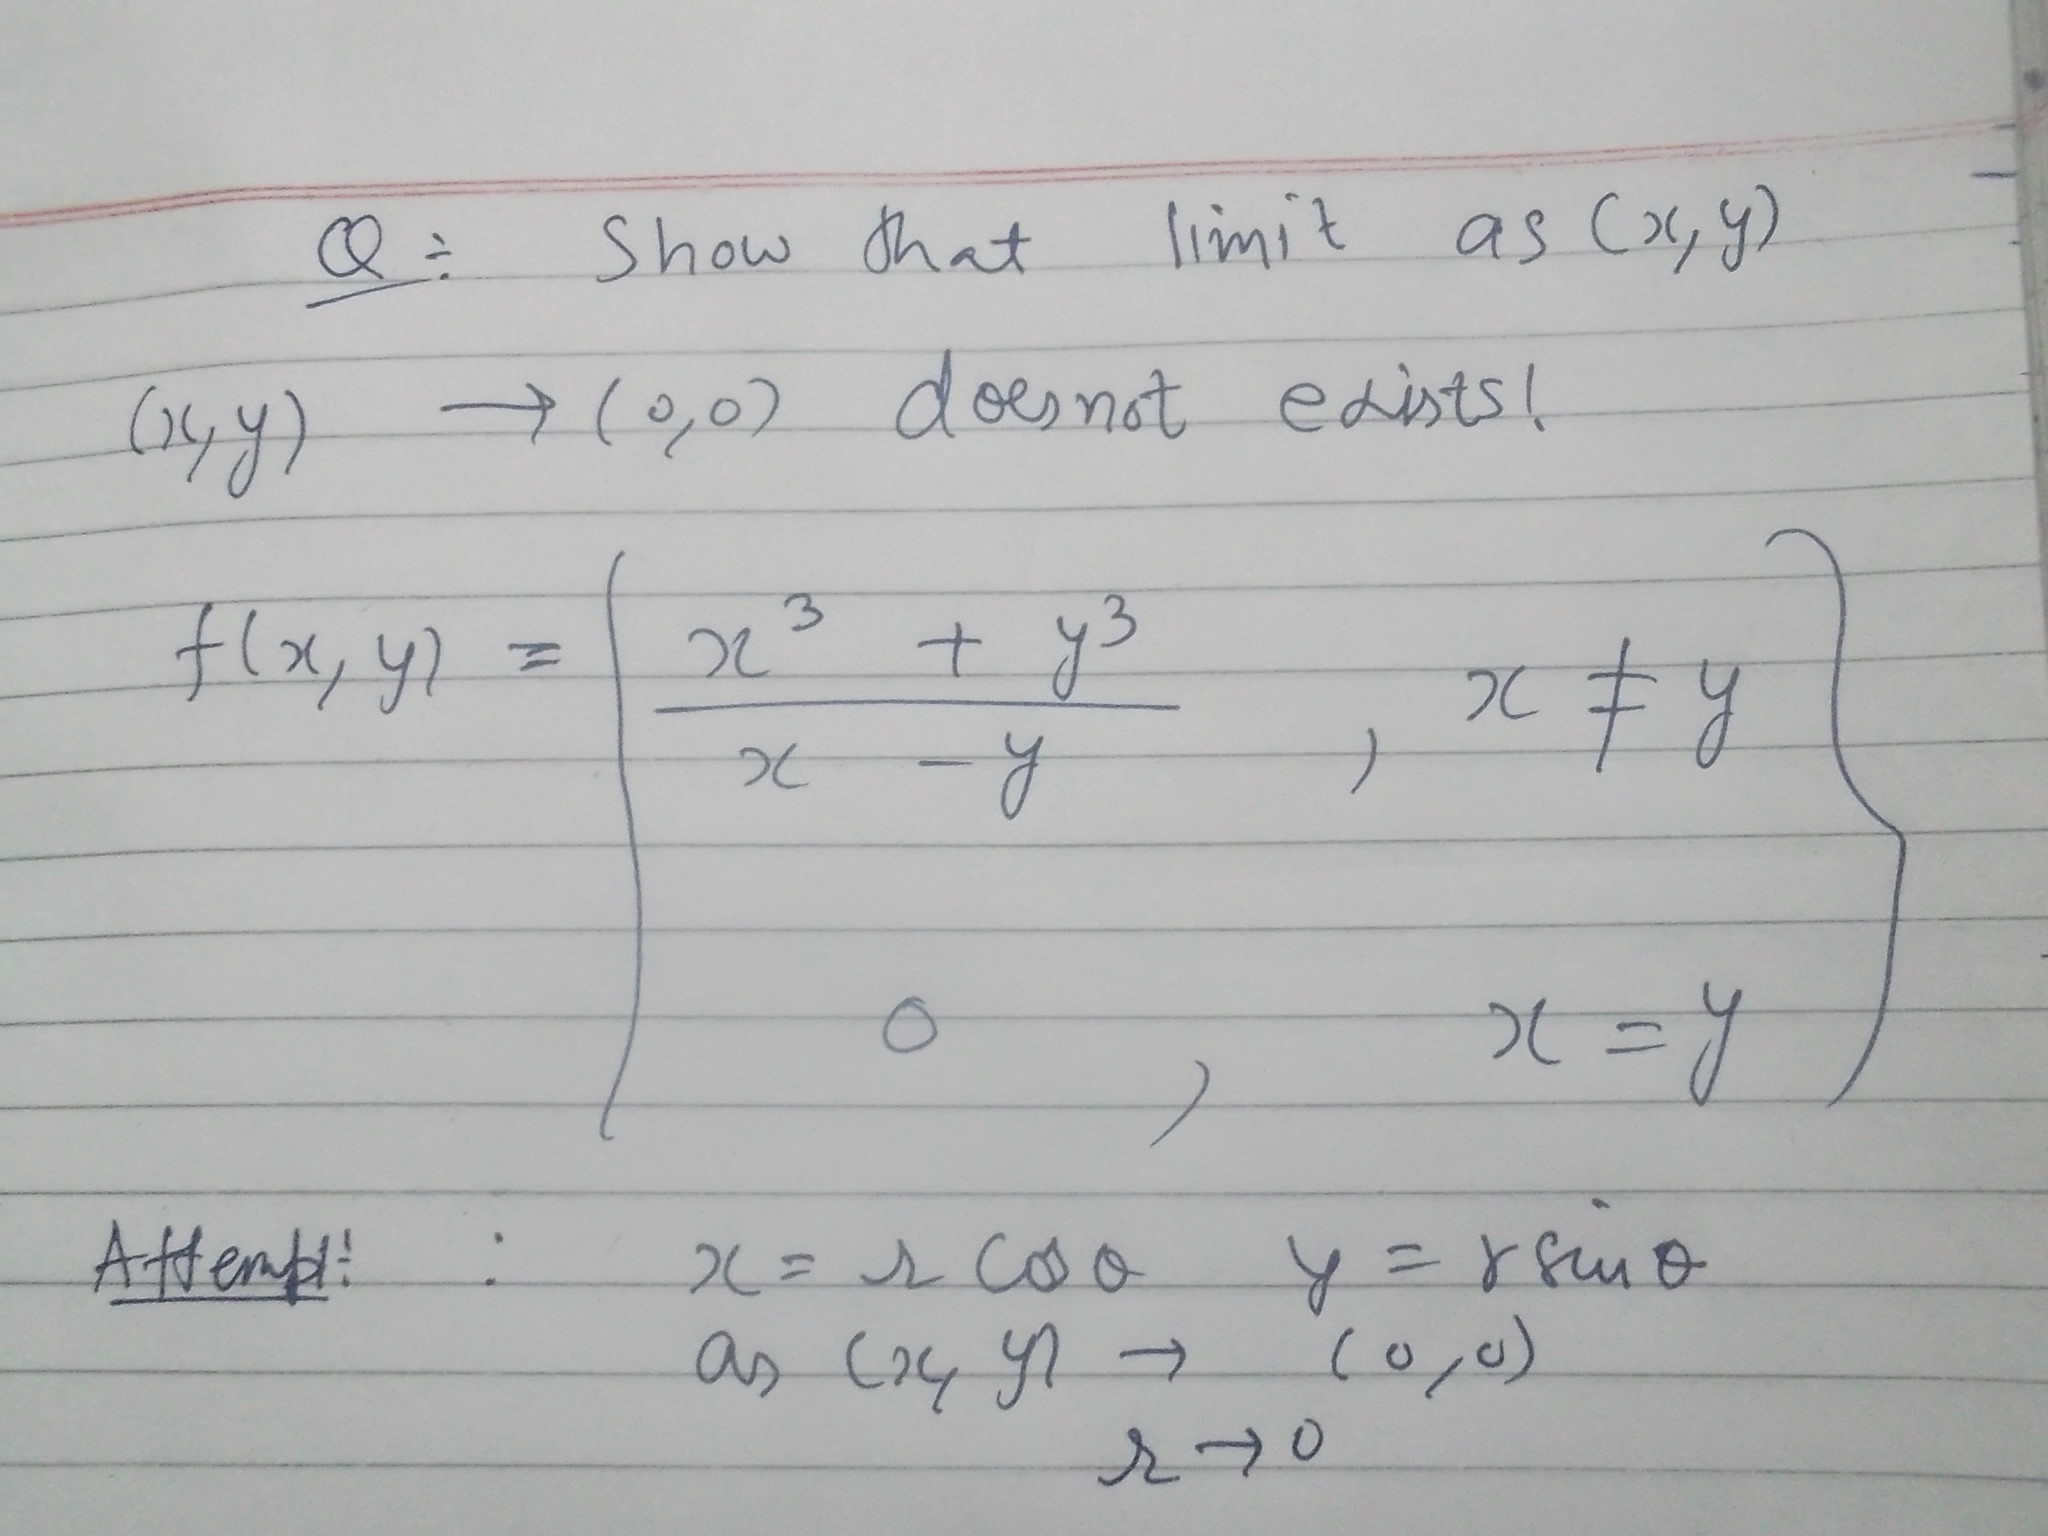 Q: Show that limit as (x,y)
(x,y) → (0,0) does not exists!
f(x,y) = { x³ + y³ / x - y , x ≠ y
0 , x = y }
Attempt: : x = r cos θ y = r sin θ
as (x,y) → (0,0)
r → 0